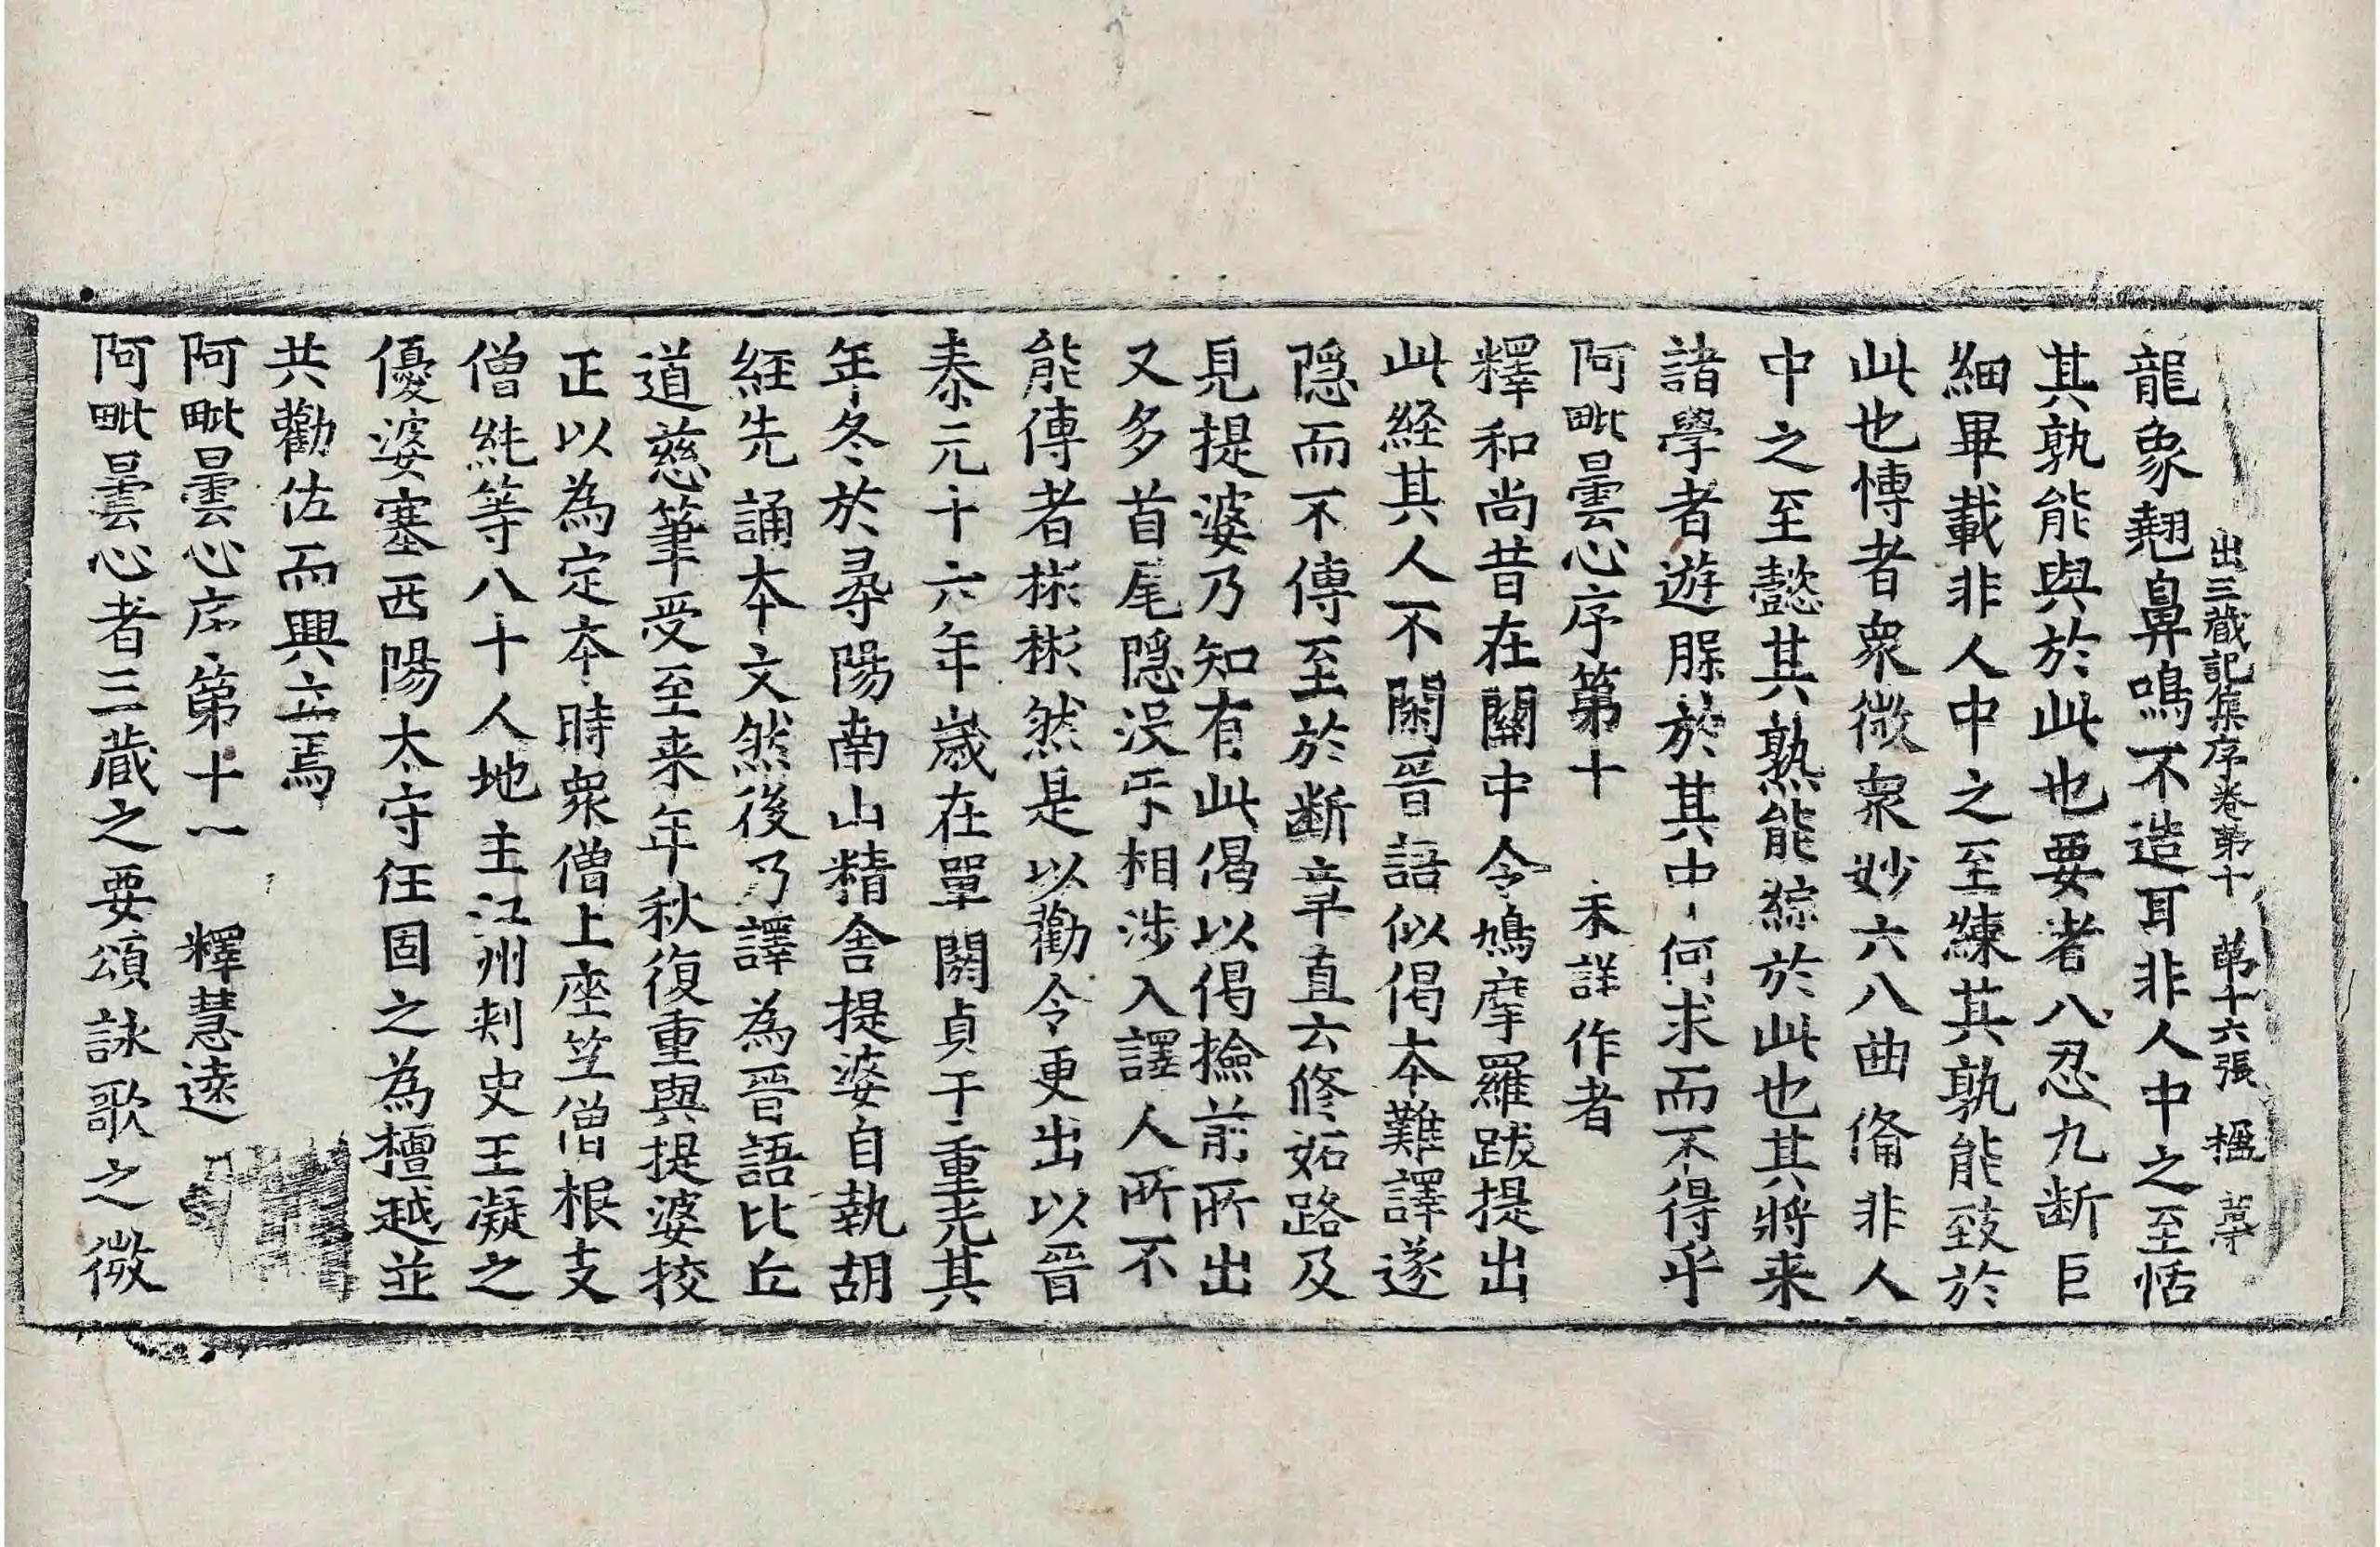 出三蔵記集序卷苐十 苐十六張 楹
龍象翹鼻鳴不造耳非人中之至恬
其孰能與於此也要者八忍九断巨
細畢載非人中之至練其孰能致於
此也慱者衆微衆妙六八曲俻非人
中之至懿其孰能綜於此也其將来
諸學者遊腂於其中何求而不得乎
阿毗曇心序第十 未詳作者
釋和尚昔在關中令鳩摩羅跋提出
此経其人不閑晉語似偈本難譯遂
隠而不傳至於断章直云修妬路及
見提婆乃知有此偈以偈撿前所出
又多首尾隠没㸦相涉入譯人所不
能傳者彬彬然是以勸令更出以晉
泰元十六年歲在單閼貞于重光其
年冬於尋陽南山精舍提婆自執胡
経先誦本文然後乃譯為晉語比丘
道慈筆受至来年秋復重與提婆挍
正以為定本時衆僧上座竺僧根支
僧純等八十人地主江州刾史王凝之
優婆塞西陽太守任固之為檀越並
共勸佐而興立焉
阿毗曇心序第十一 釋慧遠
阿毗曇心者三蔵之要頌詠歌之微